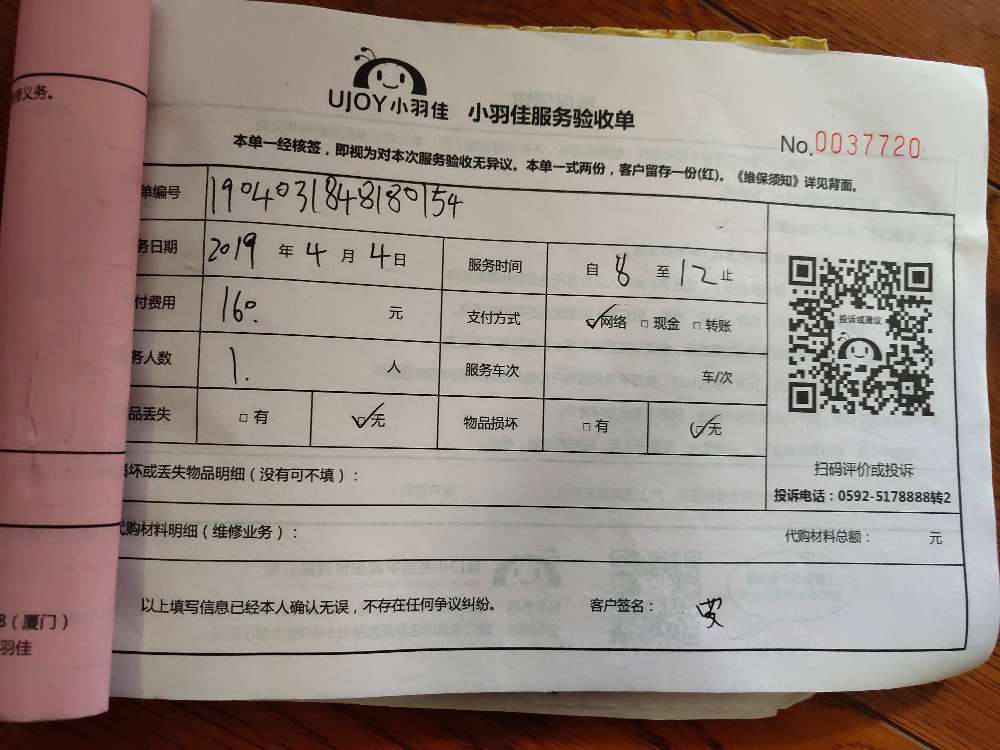 修义务。
UJOY小羽佳 小羽佳服务验收单
No.0037720
本单一经核签，即视为对本次服务验收无异议。本单一式两份，客户留存一份(红)。《维保须知》详见背面。
单编号 1904031848180154
务日期 2019 年 4 月 4 日 服务时间 自 8 至 12 止
付费用 160. 元 支付方式 网络 现金 转账
投诉或建议
务人数 1. 人 服务车次 车/次
品丢失 有 无 物品损坏 有 无
扫码评价或投诉
投诉电话：0592-5178888转2
损坏或丢失物品明细（没有可不填）：
代购材料明细（维修业务）： 代购材料总额： 元
以上填写信息已经本人确认无误，不存在任何争议纠纷。 客户签名：
8（厦门）
羽佳